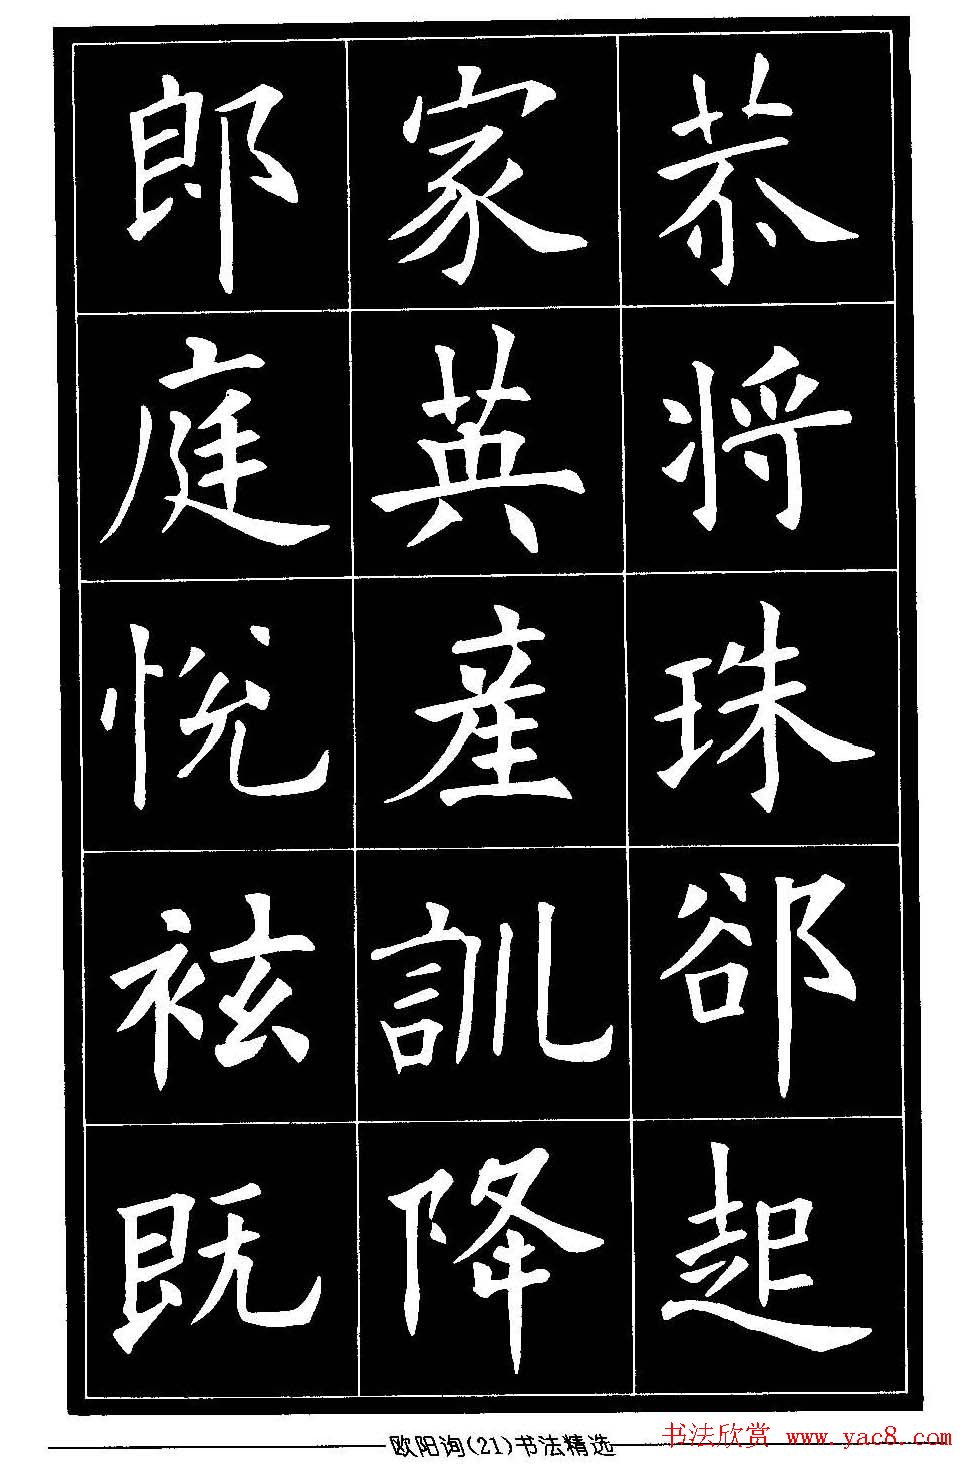 恭將珠郤起
家英產訓降
郎庭悅袨既
欧阳询(21)书法精选
书法欣赏 www.yac8.com